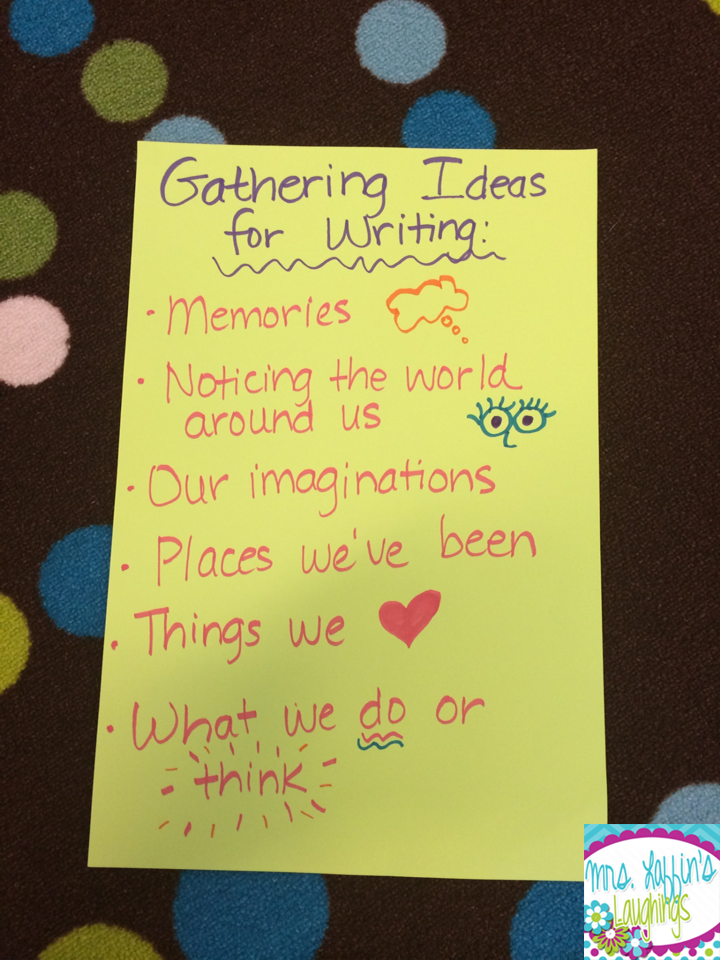 Gathering Ideas
for Writing:
· Memories
· Noticing the world
around us
· Our imaginations
· Places we've been
· Things we
· What we do or
think
Mrs. Laffin's
Laughings